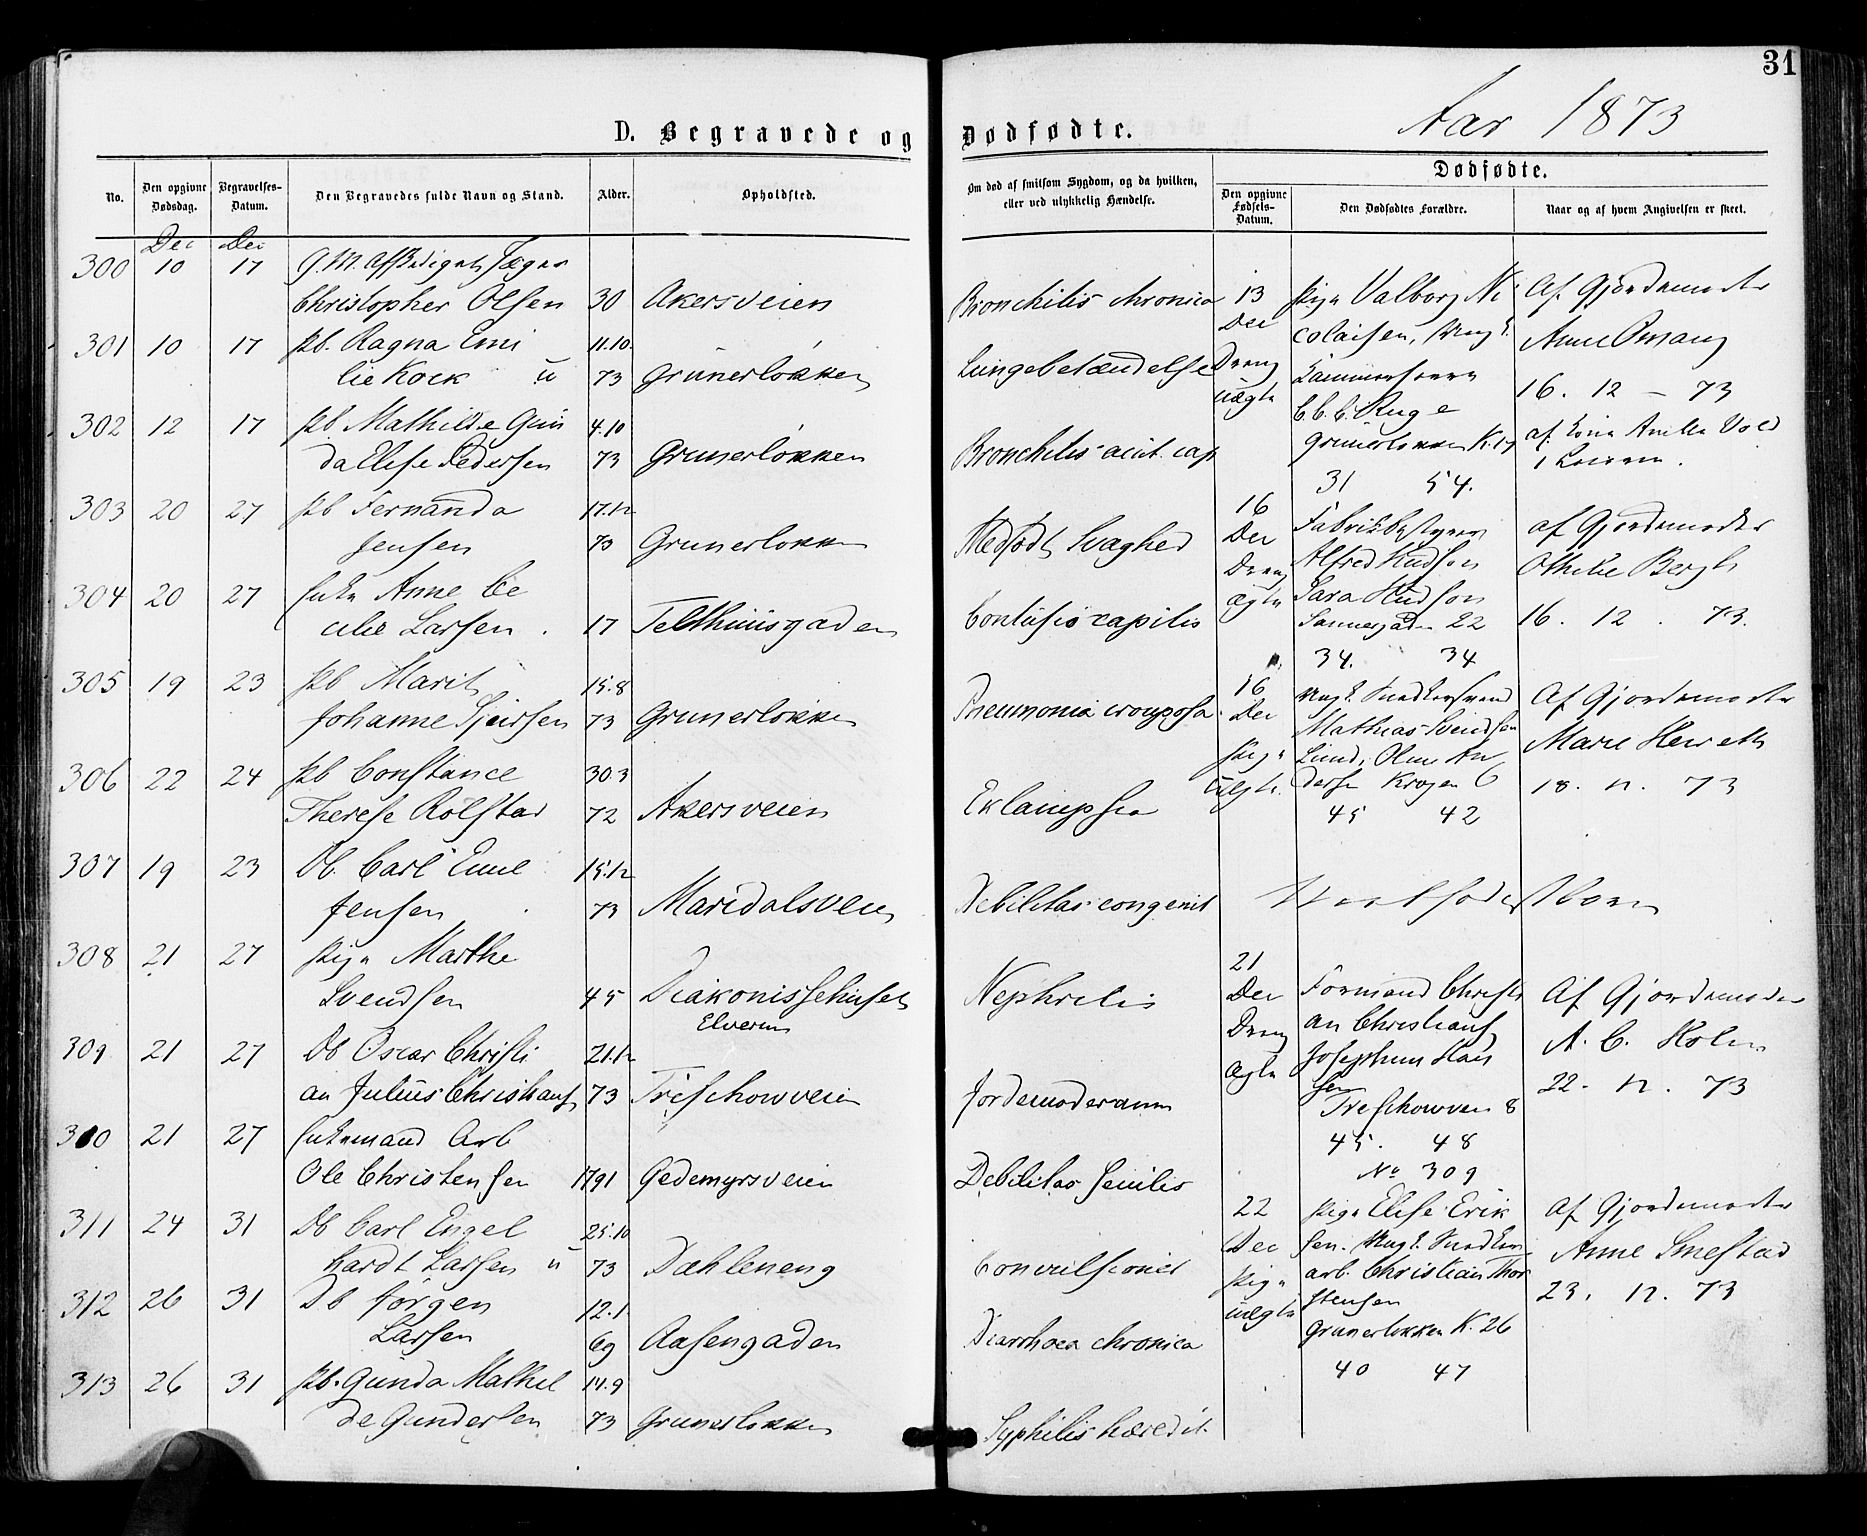 31
Aar 1873
D. Begravede og Dødfødte.
No.
Den opgivne Dødsdag.
Begravelses-Datum.
Den Begravedes fulde Navn og Stand.
Alder.
Opholdsted.
Om død af smitsom Sygdom, og da hvilken, eller ved ulykkelig Hændelse.
Dødfødte.
Den opgivne Fødsels-Datum.
Den Dødfødtes Forældre.
Naar og af hvem Angivelsen er skeet.
Dec Dec
300 10 17 G.M. Jæger
Christopher Olsen 30 Akersveien Bronchitis chronica
301 10 17 Pb. Ragna Emi 11.10.
lie Kock u 73 Grünerløkken Lungebetændelse
302 12 17 Pb Mathilde Gun 4.10
da Elise Pedersen 73 Grünerløkken Bronchitis acut. cap
303 20 27 Pb Fernanda 17.12
Jensen 73 Grunerløkken Medfødt Svaghed
304 20 27 Enke Anne Ce
cilie Larsen. 17 Telthuusgaden Contusio capitis
305 19 23 Pb Marit 15.8
Johanne 73 Grunerløkken Pneumonia crouposa
306 22 24 Pb Constance 30.3
Therese Rolstad 72 Akersveien Eklampsia
307 19 23 Db. Carl Emil 15.12
Jensen 73 Maridalsveien Debilitas congenit
308 21 27 Pige Marthe
Svendsen 45 Diakonissehuset Nephritis
Elverum
309 21 27 Db Oscar Christi 21.12
an Julius Christians 73 Treschowveien Jordemoderann
310 21 27 Enkemand Arb
Ole Christensen 1791 Gedemyrsveien Debilitas senilis
311 24 31 Db Carl Engel 25.10
hardt Larsen u 73 Dæhleneng Convulsioner
312 26 31 Db Jörgen 12.1
Larsen 69 Aasengaden Diarrhoea chronica
313 26 31 Pb. Gunda Mathil 14.9
de Gundersen 73 Grunerløkken Syphilis heredit.
13 Pige Valborg Ni Af Gjordemoder
Dec colaisen, Ung k. Anne Omang
Dreng 16. 12 – 73
uægte C.C.C. Ruge
Grünerløkken K.17
31 54.
16 Fabrikbestyrer af Gjordemoder
Dec Alfred Hudson Othilie Bergh
Dreng Sara Hudson
ægte Sannergaden 22 16. 12. 73.
34. 34
16 Ung k. Snedkersvend Af Gjordemoder
Dec Mathias Svendsen Marie
Pige Lund, Oline An
uægte. dersen Krogen 6 18. 12. 73
45 42
21
Dec Formand Christi Af Gjordemoder
Dreng an Christians A. C. Holm
ægte Josephine Han
sen 22. 12. 73
Treschowveien 8
45. 48
No 309
22 Pige Elise Erik Af Gjordemoder
Dec sen. Ung k. Snedker Anne Smestad
Pige arb. Christian Thor
uægte stensen 23. 12. 73
Grunerløkken K. 26
40 47